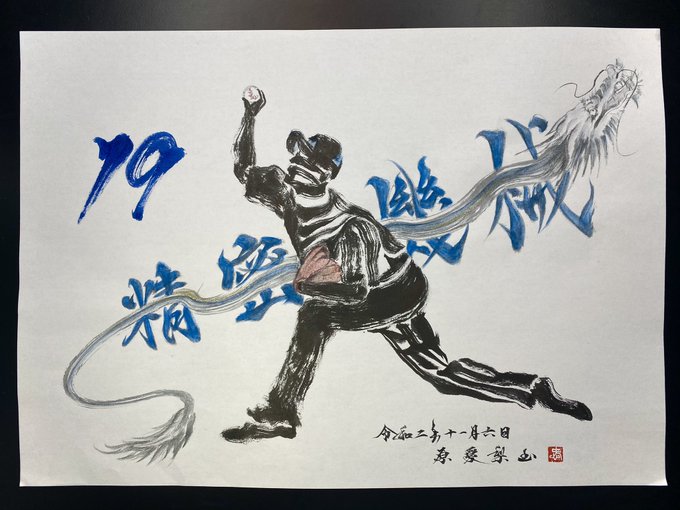 19
精密機械
令和二年十一月六日
原愛梨